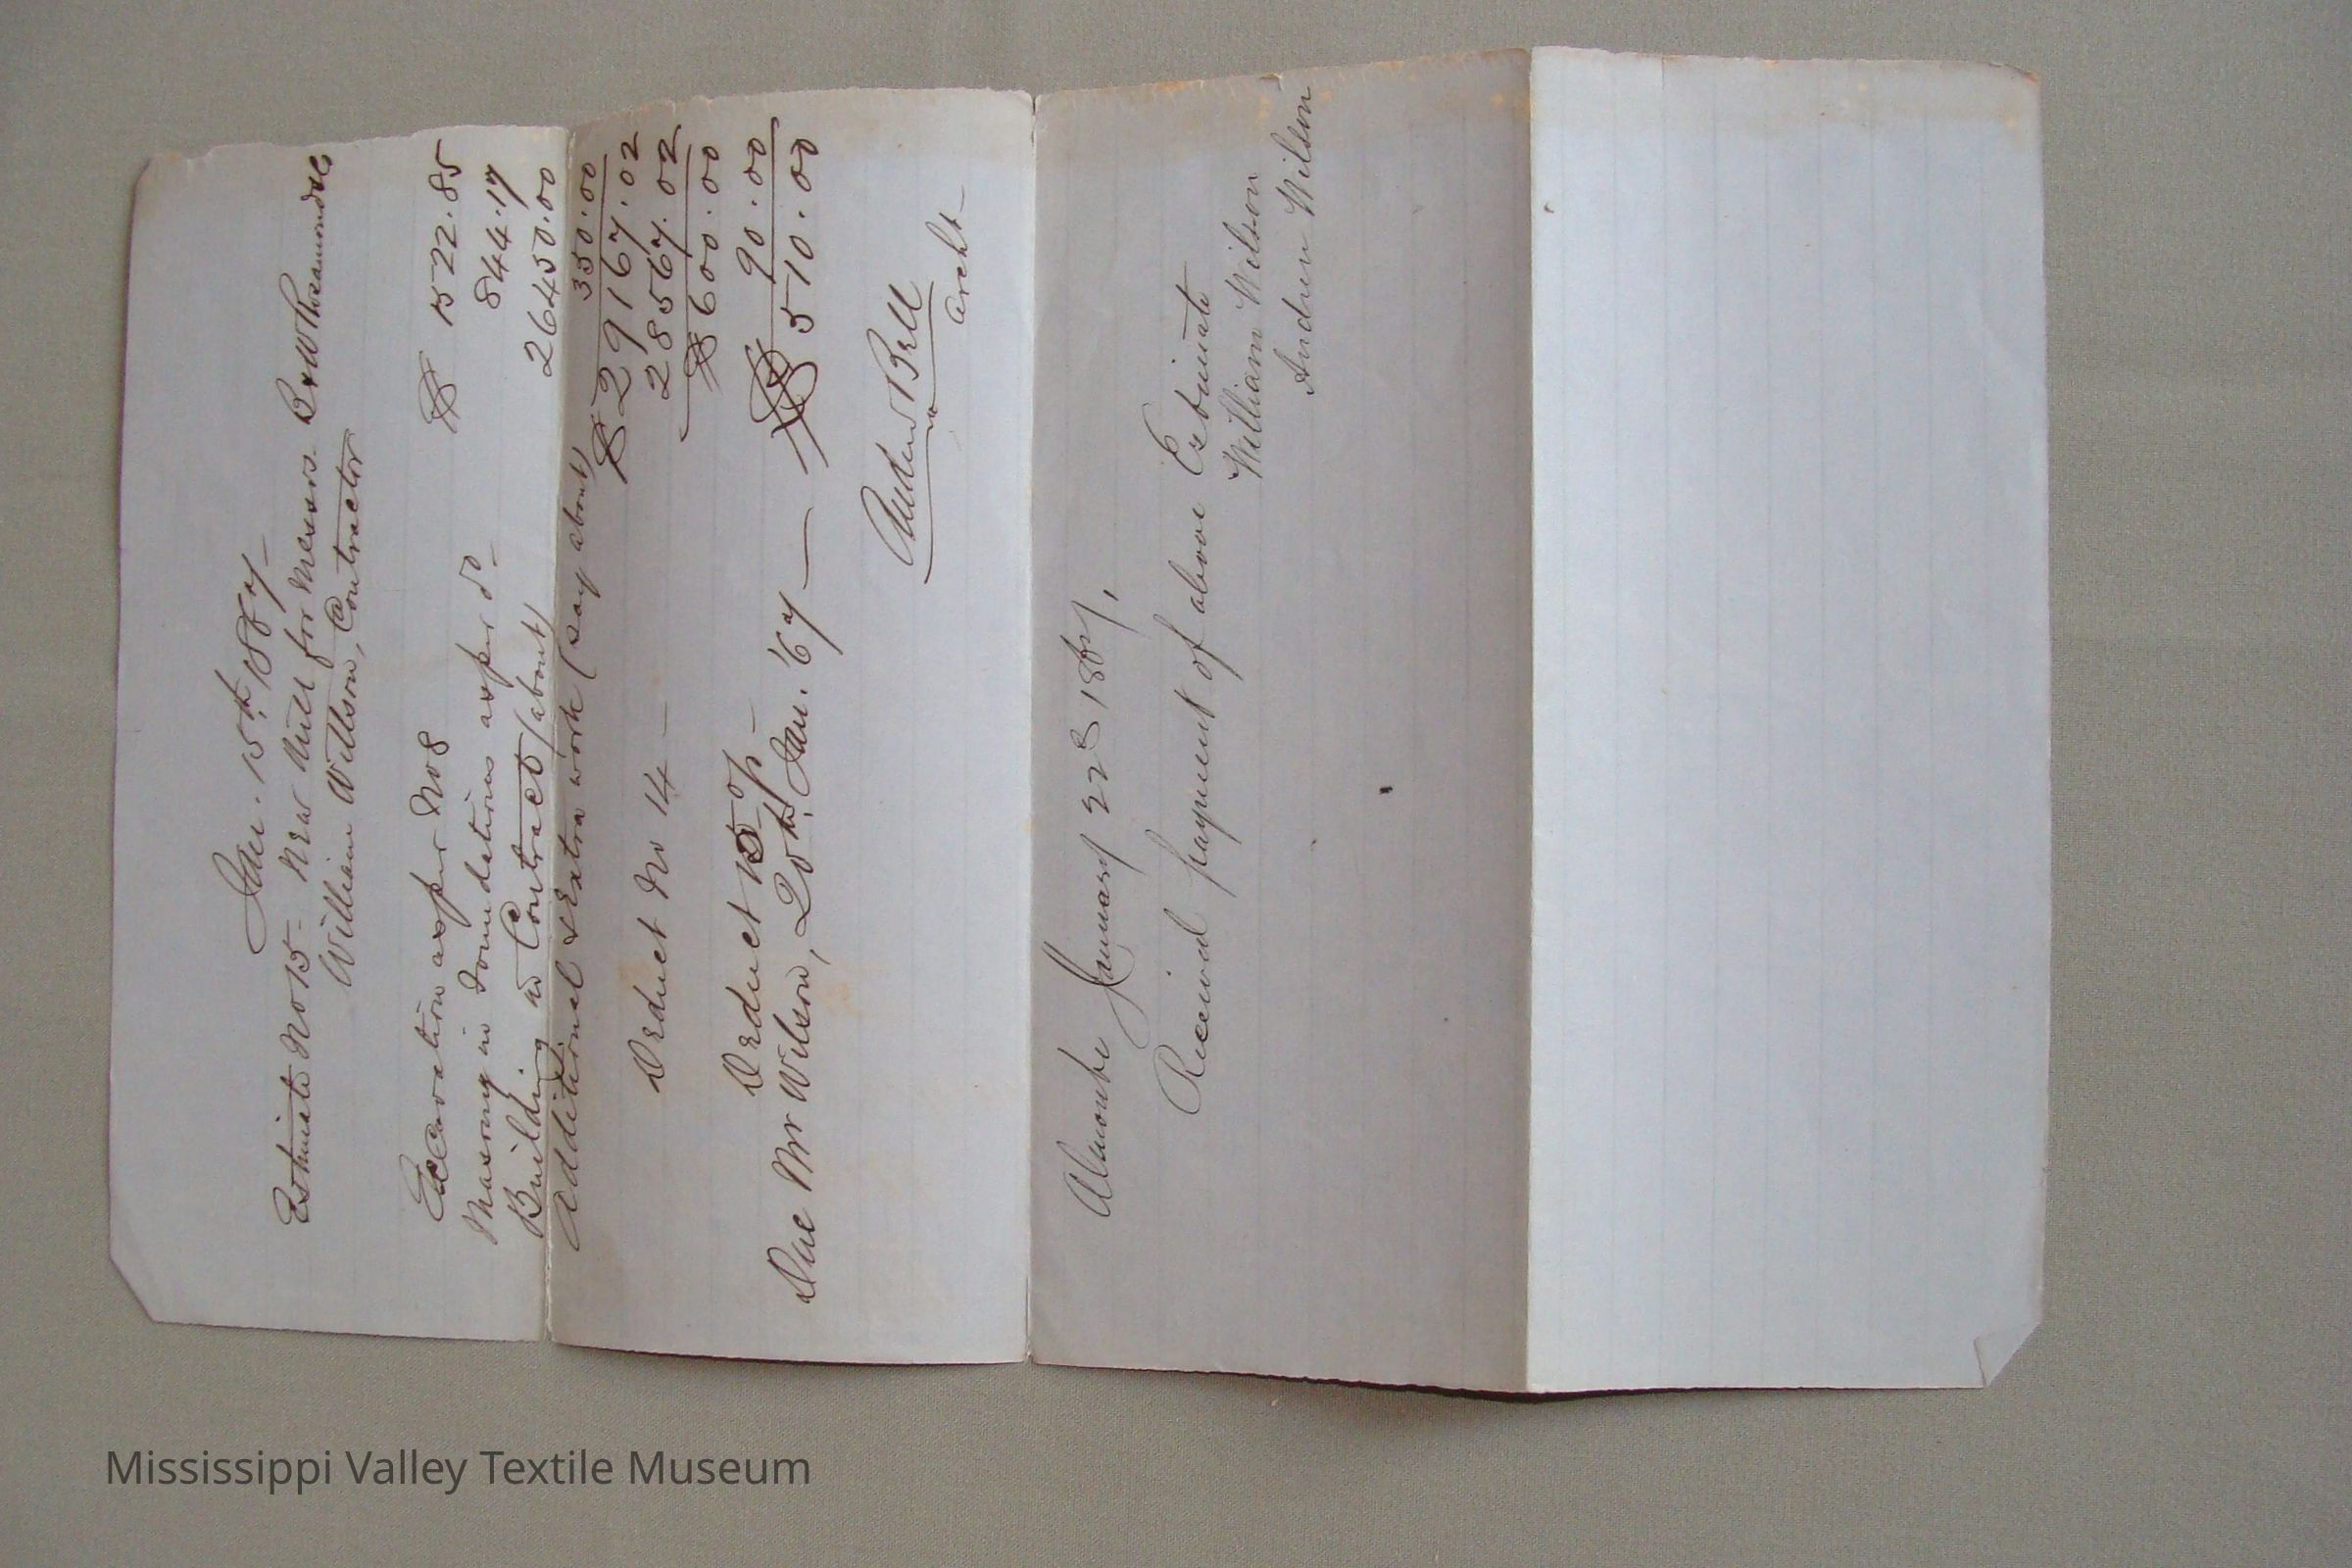 Jan. 15th, 1867 —
Estimate No 15 - New Mill for Messrs. B & W Rosamond &c
William Willson, Contractor
Excavation as per No 8 $ 1522.85
Masonry in Foundations as per do - 844.17
Building as Contract (about) 26450.00
Additional & Extra work (say about) 350.00
$ 29167.02
Deduct No 14 — 28567.02
$ 600.00
Deduct 15 op - 90.00
Due Mr Wilson, 20th Jan. '67 — $ 510.00
Andrew Bell
Archt -
Almonte January 22d 1867,
Received payment of above Estimate
William Wilson
Andrew Wilson
Mississippi Valley Textile Museum